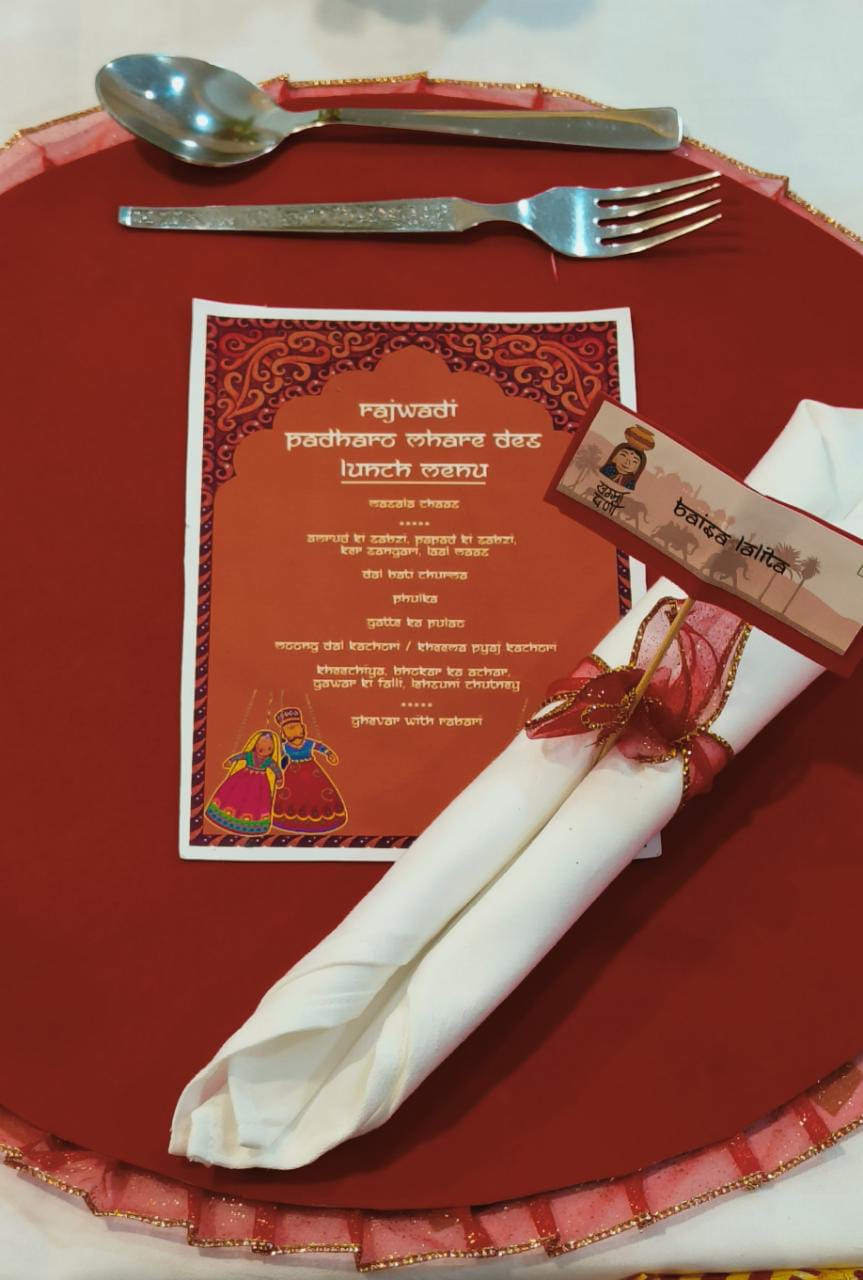 rajwadi
padharo mhare des
lunch menu
masala chaas
*****
amrud ki sabzi, papad ki sabzi,
ker sangari, laal maas
dal bati churma
phulka
gatte ka pulao
moong dal kachori / kheema pyaj kachori
kheechiya, bhokar ka achar,
gawar ki falli, lehsuni chutney
*****
ghevar with rabari
खम्मा
घणी
baisa lalita